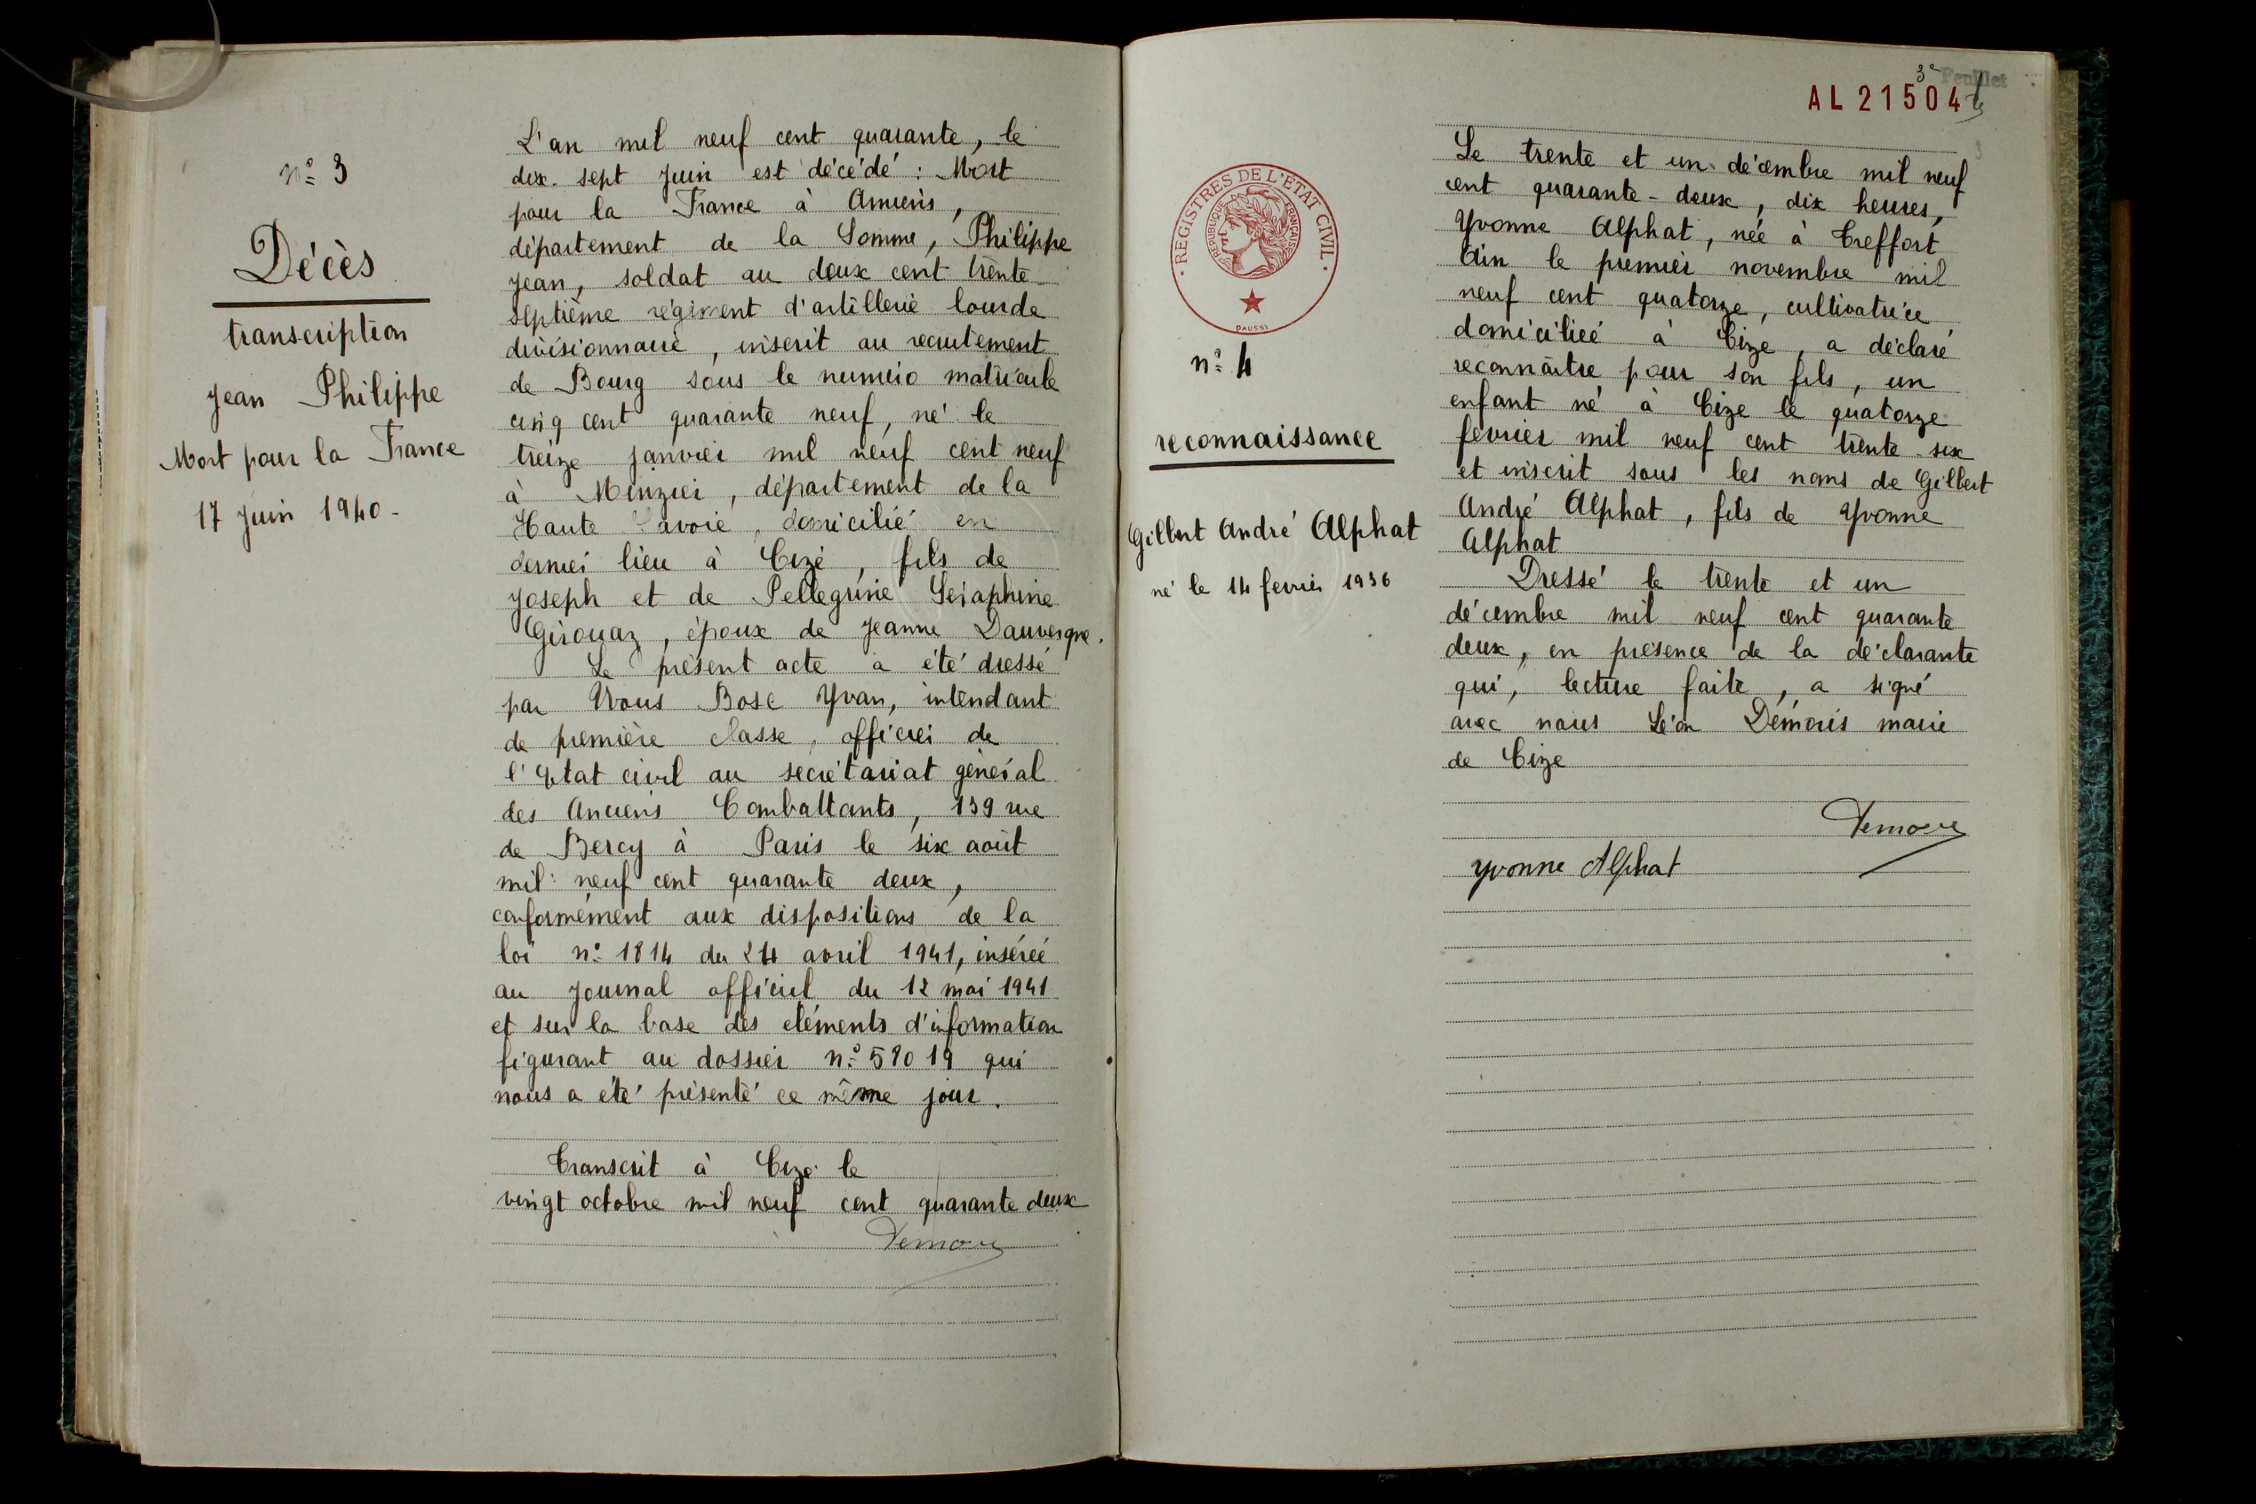 n° 3
Décès
transcription
Jean Philippe
Mort pour la France
17 Juin 1940-
L'an mil neuf cent quarante, le
dix-sept Juin est décédé : Mort
pour la France à Amiens,
département de la Somme, Philippe
Jean, soldat au deux cent trente
septième régiment d'artillerie lourde
divisionnaire, inscrit au recrutement
de Bourg sous le numéro matricule
cinq cent quarante neuf, né le
treize janvier mil neuf cent neuf
à Minzier, département de la
Haute Savoie, domicilié en
dernier lieu à Cize, fils de
Joseph et de Pellegrine Séraphine
Girouaz, époux de Jeanne Dauvergne.
Le présent acte a été dressé
par Nous Bosc Yvan, intendant
de première classe, officier de
l'Etat civil au secrétariat général
des Anciens Combattants, 139 rue
de Bercy à Paris le six août
mil neuf cent quarante deux,
conformément aux dispositions de la
loi n° 1814 du 24 avril 1941, insérée
au Journal officiel du 12 mai 1941
et sur la base des éléments d'information
figurant au dossier n° 58019 qui
nous a été présenté ce même jour.
Transcrit à Cize le
vingt octobre mil neuf cent quarante deux
Demoris
3e Feuillet
AL 21504
REGISTRES DE L'ETAT CIVIL
REPUBLIQUE FRANÇAISE
DAUSSY
n° 4
reconnaissance
Gilbert André Alphat
né le 14 février 1936
Le trente et un décembre mil neuf
cent quarante-deux, dix heures,
Yvonne Alphat, née à Treffort
Ain le premier novembre mil
neuf cent quatorze, cultivatrice
domiciliée à Cize, a déclaré
reconnaître pour son fils, un
enfant né à Cize le quatorze
février mil neuf cent trente-six
et inscrit sous les noms de Gilbert
André Alphat, fils de Yvonne
Alphat
Dressé le trente et un
décembre mil neuf cent quarante
deux, en présence de la déclarante
qui, lecture faite, a signé
avec nous Léon Démoris maire
de Cize
Demoris
Yvonne Alphat